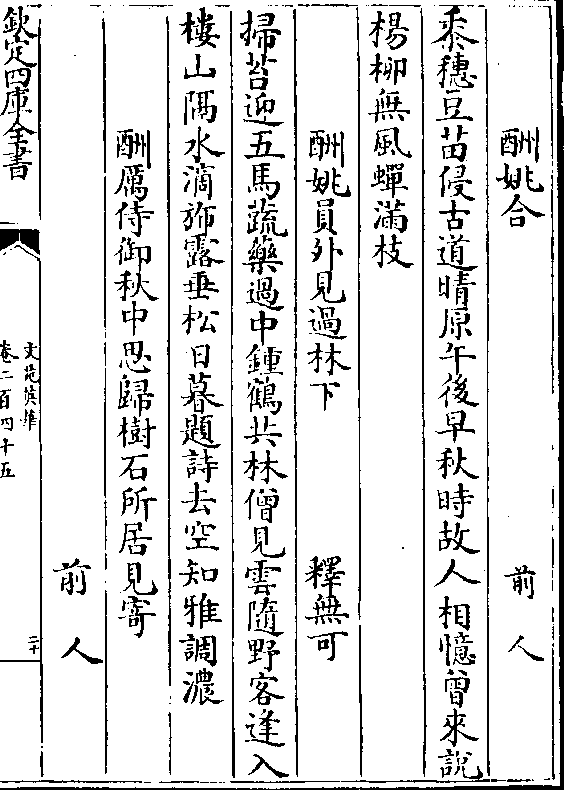 酬姚合 前人
黍穗豆苗侵古道晴原午後早秋時故人相憶曾來説
楊柳無風蟬滿枝
酬姚員外見過林下 釋無可
掃苔迎五馬蔬藥過中鍾鶴共林僧見雲隨野客逢入
樓山隔水滴旆露垂松日暮題詩去空知雅調濃
酬厲侍御秋中思歸樹石所居見寄
前人
欽定四庫全書
文苑英華
卷二百四十五
二十